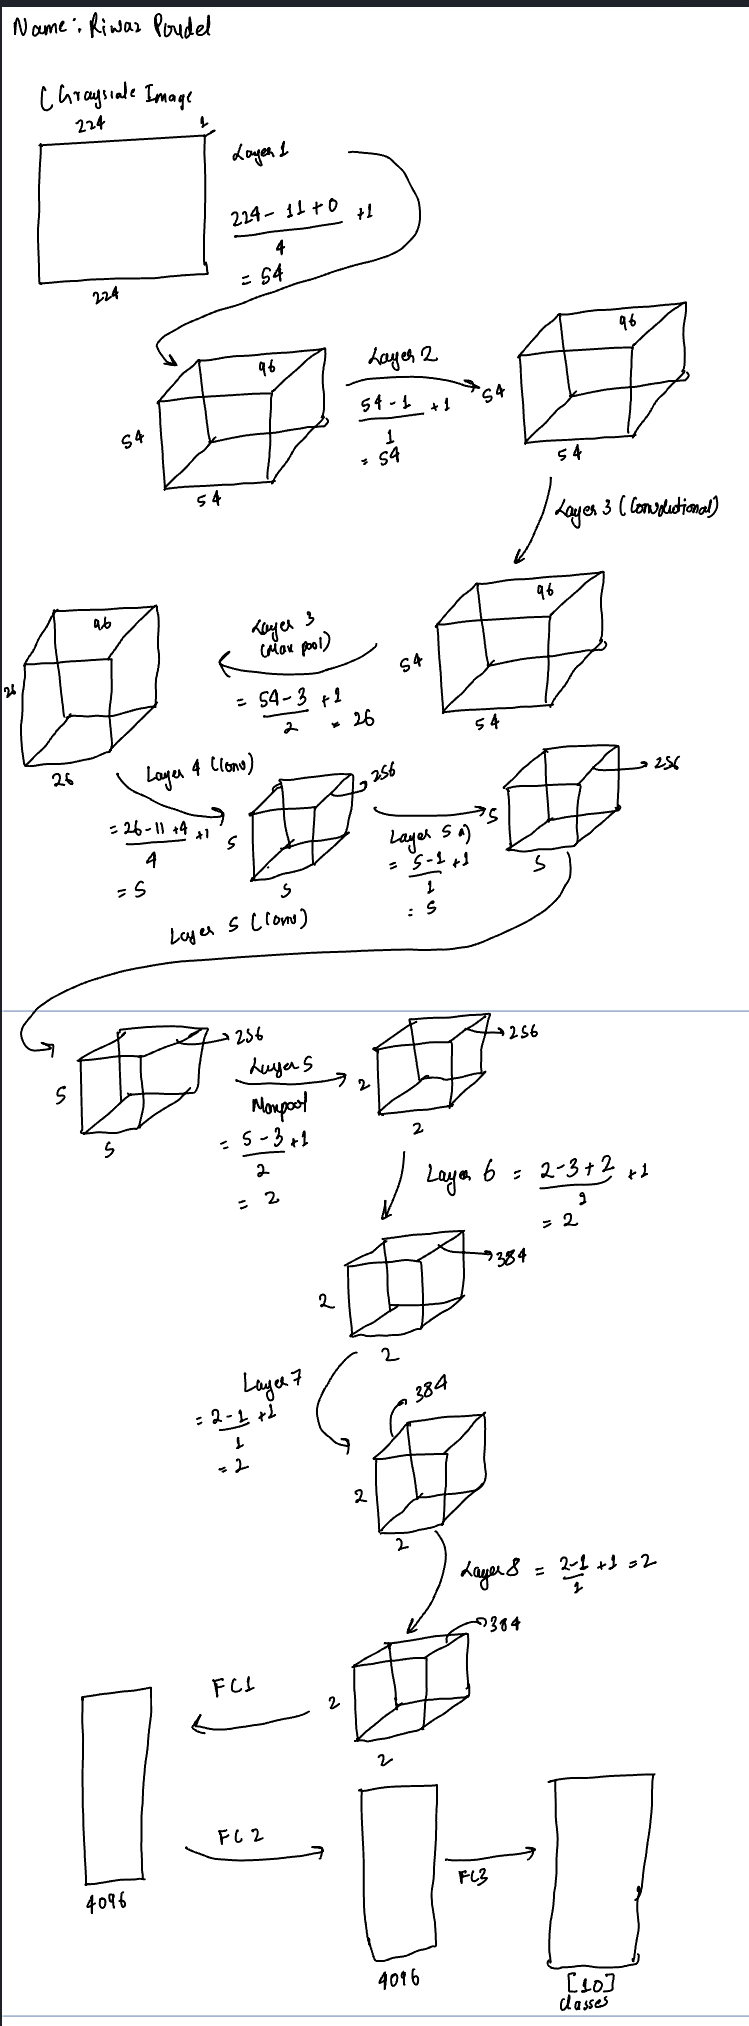 Name: Riwaz Poudel
( Grayscale Image
224
1
Layer 1
224 - 11 + 0 / 4 + 1
= 54
224
96
54
54
Layer 2
54 - 1 / 1 + 1
= 54
96
54
54
Layer 3 (Convolutional)
96
54
54
Layer 3
(Max pool)
= 54 - 3 / 2 + 1
= 26
96
26
26
Layer 4 (Conv)
= 26 - 11 + 4 / 4 + 1
= 5
256
5
5
Layer 5 a)
= 5 - 1 / 1 + 1
= 5
256
5
5
Layer 5 (Conv)
256
5
5
Layer 5
Maxpool
= 5 - 3 / 2 + 1
= 2
256
2
2
Layer 6 = 2 - 3 + 2 / 1 + 1
= 2
384
2
2
Layer 7
= 2 - 1 / 1 + 1
= 2
384
2
2
Layer 8 = 2 - 1 / 1 + 1 = 2
384
2
2
FC1
4096
FC2
4096
FC3
[10]
classes